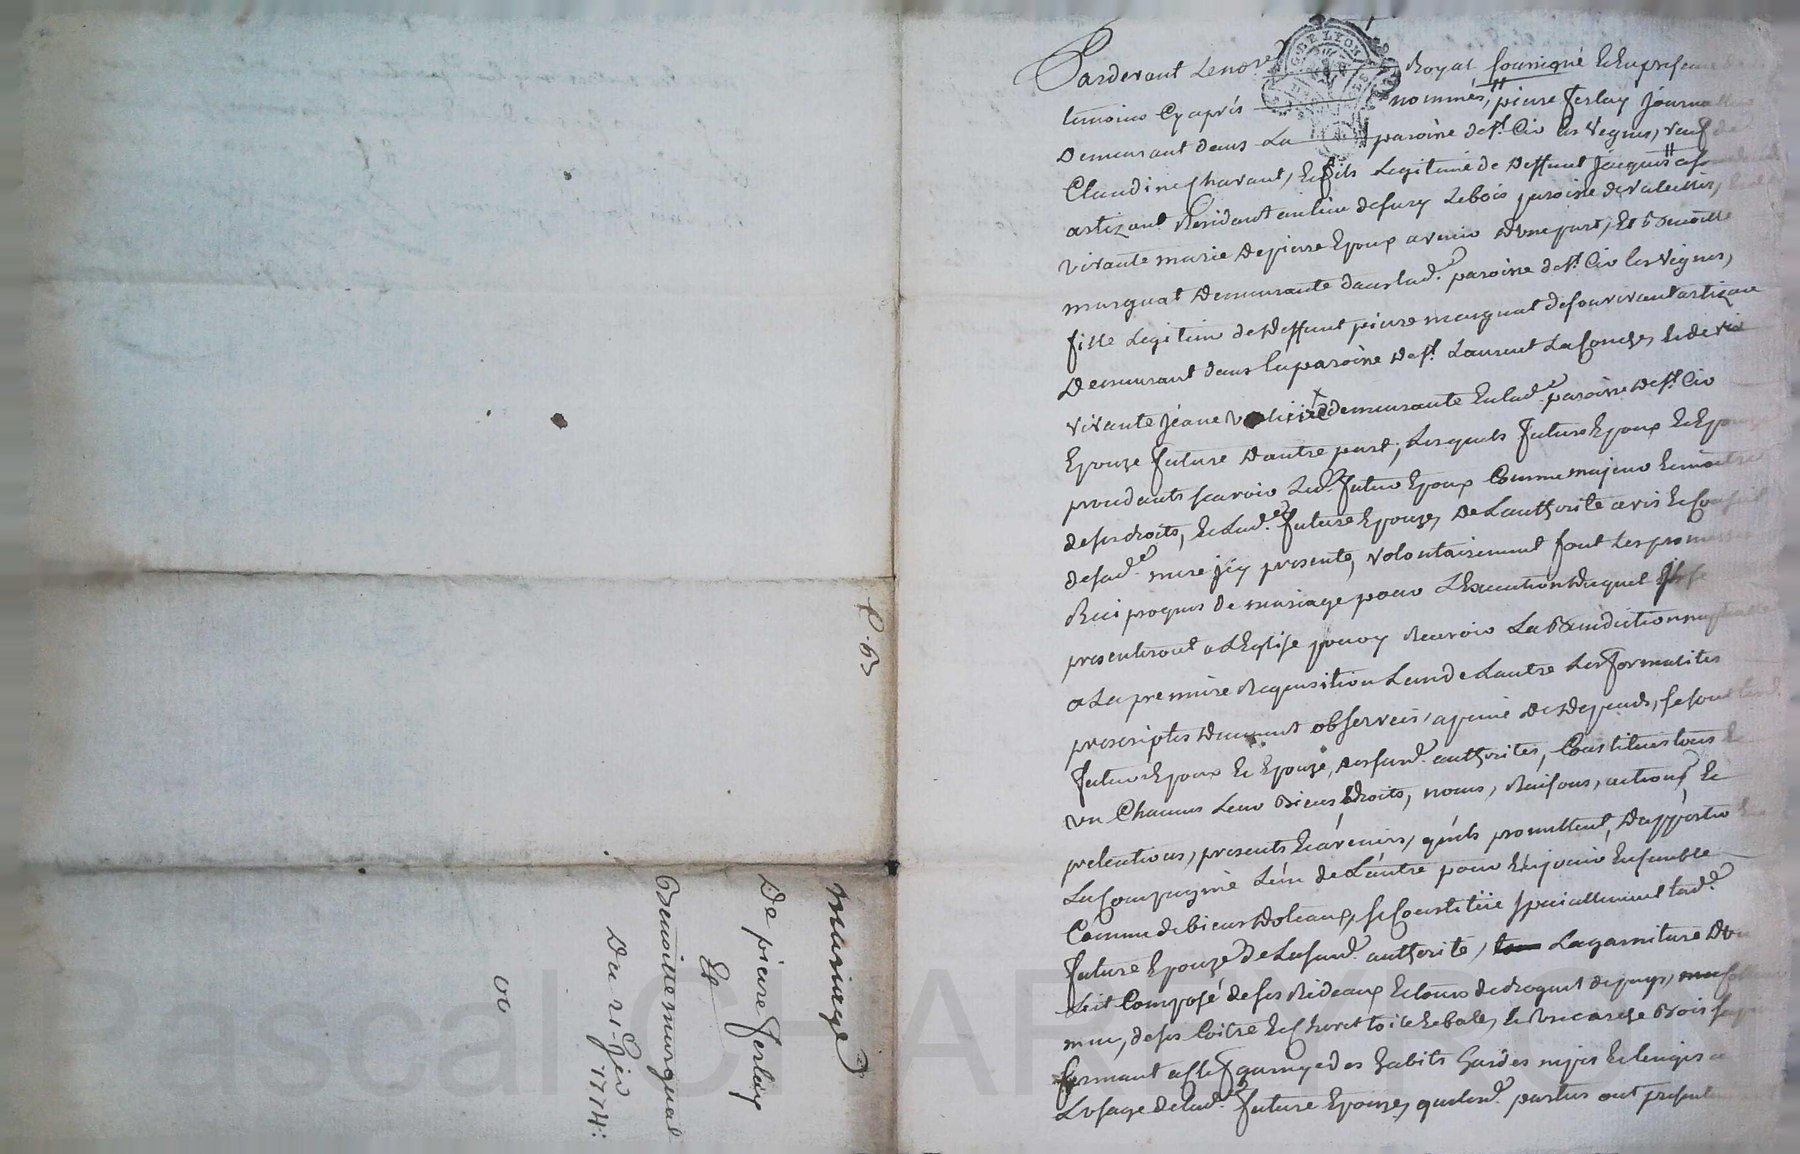 P. 67
mariage
De pierre Ferlay
Et
Benoitte murguat
Du 21 Jer
1774:
00
G. DE LYON
Pardevant Lenore Royal soussigné Et En presence
temoins Cy après nommés, pierre Ferlay Journallier
Demeurant dans La paroisse de St. Cir les Vignes, veuf de
Claudine Chavant, Et fils Legitime de Deffunt Jacques
artizant Residant au lieu de fury Lebois paroisse de valeilles,
vivante marie Depierre Epoux avenir D'une part, Et Benoitte
murguat Demeurante dans lad.e paroisse de St. Cir les Vignes,
fille Legitime de Deffunt pierre murguat de son vivant artizan
Demeurant dans la paroisse de St. Laurent La Conche, Et de
vivante Jeane demeurante En lad.e paroisse de St. Cir
Epouze future D'autre part, Lesquels futurs Epoux Et Epouze
procedants scavoir Led. futur Epoux Comme majeur Et maitre
de ses droits, Et Lad.e future Epouze, De L'authorité avis Et Conseil
de sad.e mere Jcy presente, volontairement font Les promesses
Reciproques de mariage pour L'Execution Duquel
presenteront a L'Eglise pour y Recevoir La Benediction nuptialle
a La premiere Requisition L'un de L'autre Les formalités
prescriptes Duement observées, a peine De Depends, se sont
futurs Epoux Et Epouze, de sus.d. authorités, Constitués tous
un Chacuns Leur Biens Droits, noms, Raisons, actions, Et
pretentions, presents Et avenirs, qu'ils promettent, D'apporter
La Compagnie L'un de L'autre pour En jouir Ensemble
Comme de biens Dotaux, se Constitüe specialement lad.e
future Epouze De La sus.d. authorité, La garniture D'un
Lit Composé de ses Rideaux Et tours de de pays,
de ses Coitre Et Chevet toile Et bale, Et Une Bois
fermant a Clef garnye des habits hardes nipes Et linges a
L'usage de Lad.e future Epouze, que les d. parties ont
Pascal CHAREYRON